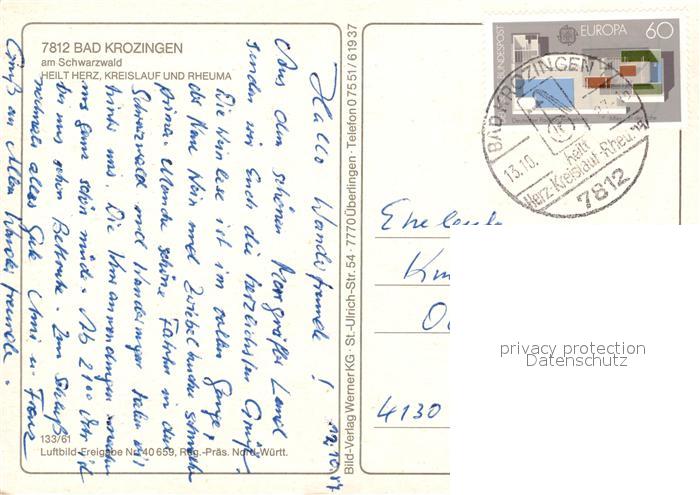 7812 BAD KROZINGEN
am Schwarzwald
HEILT HERZ, KREISLAUF UND RHEUMA
12.10.87
Hallo Wandersfreunde!
Aus dem schönen Markgräfler Land
senden wir Euch die herzlichsten Grüße.
Die Weinlese ist im vollen Gange,
der Neue Wein und Zwiebelkuchen schmecken
prima. Manche schöne Fahrten in den
Schwarzwald und Wanderungen haben wir
hinter uns. Die Kuranwendungen machen
uns ganz schön müde. Ab 2100 Uhr ist
bei uns schon Bettruhe. Zum Schluß
nochmals alles Gute und
Gruß an Alle Wanderfreunde.
133/61
Luftbild-Freigabe Nr. 40 659, Reg.-Präs. Nord-Württ.
Bild-Verlag Werner KG · St.-Ulrich-Str. 54 · 7770 Überlingen · Telefon 07551/61937
DEUTSCHE BUNDESPOST
EUROPA
60
BAD KROZINGEN
13.10.
heilt
Herz-Kreislauf-Rheuma
7812
Eheleute
4130
privacy protection
Datenschutz